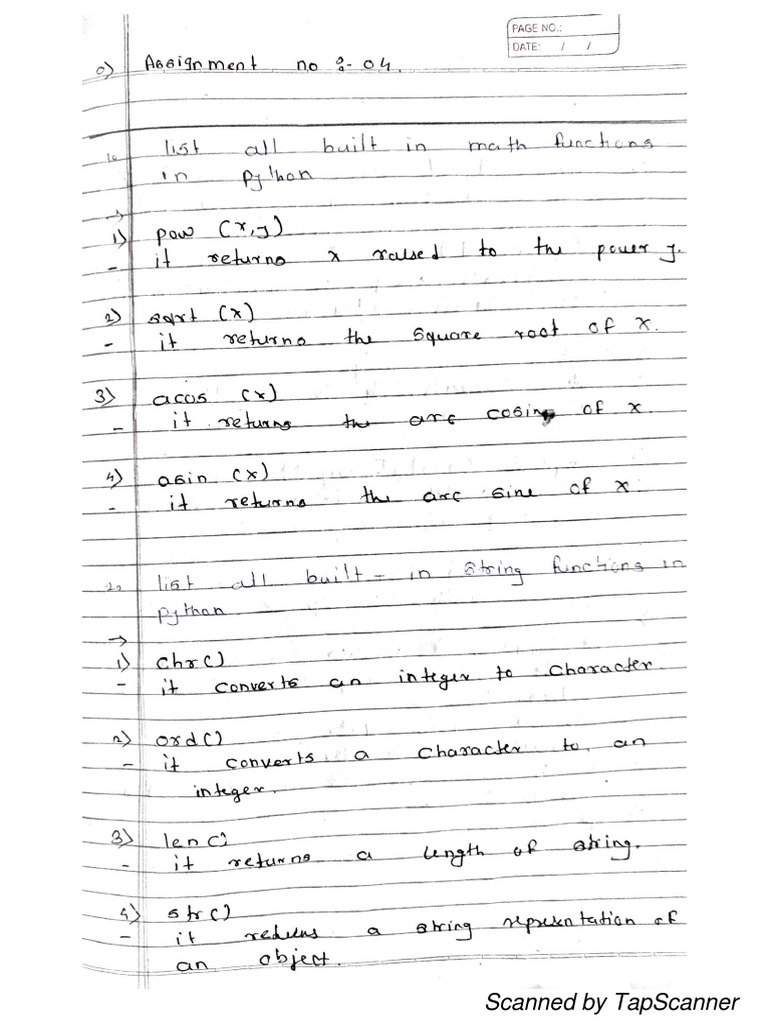 PAGE NO.:
DATE: / /
0) Assignment no :- 04.
1. list all built in math functions
in python
→
1) pow (x,y)
- it returns x raised to the power y.
2) sqrt (x)
- it returns the square root of x.
3) acos (x)
- it returns the arc cosine of x.
4) asin (x)
- it returns the arc sine of x
2. list all built-in string functions in
python
→
1) chr()
- it converts an integer to character.
2) ord()
- it converts a character to an
integer.
3) len()
- it returns a length of string.
4) str()
- it a string of
an object.
Scanned by TapScanner